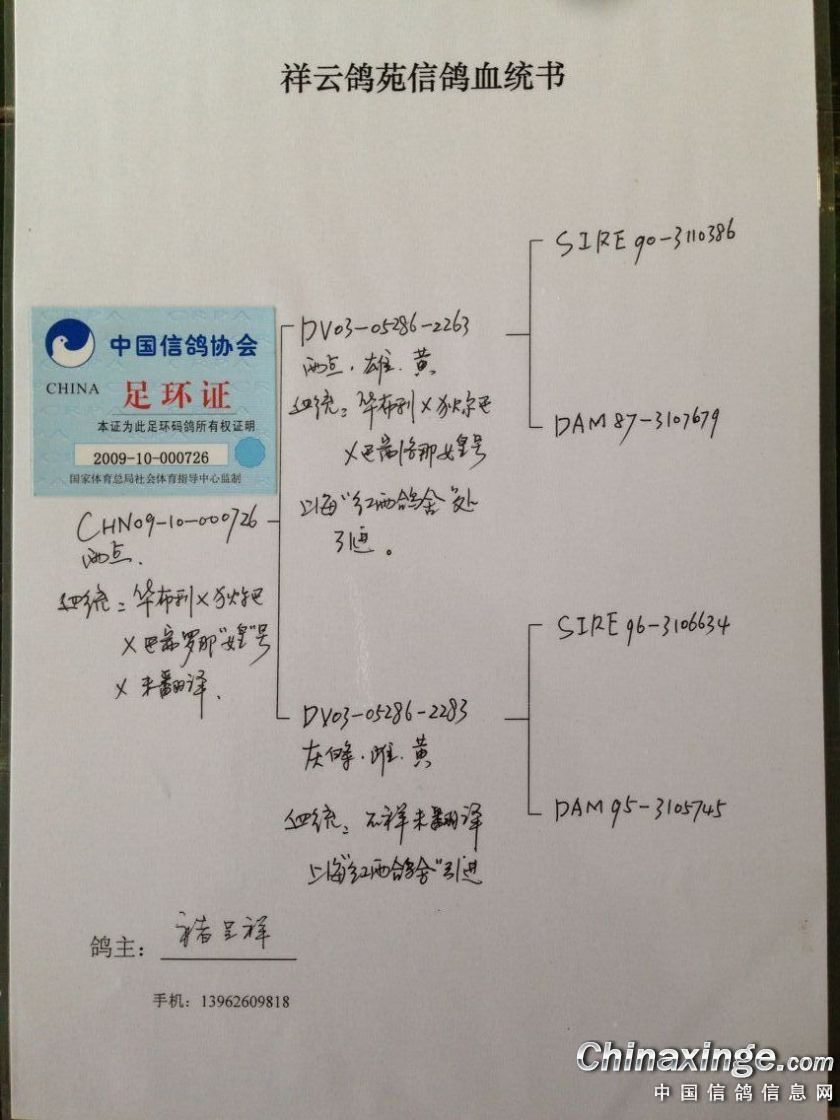 祥云鸽苑信鸽血统书
SIRE 90-3110386
中国信鸽协会
CHINA
足环证
本证为此足环码鸽所有权证明
2009-10-000726
国家体育总局社会体育指导中心监制
DV03-05286-2263
雨点.雄.黄
血统:华布利×狄尔巴
×巴塞洛那女皇号
上海"红西鸽舍"处
引进。
DAM 87-3107679
CHN09-10-000726
雨点.
血统:华布利×狄尔巴
×巴塞罗那"女皇"号
×未翻译.
SIRE 96-3106634
DV03-05286-2283
灰白条.雌.黄
血统:不祥未翻译
上海"红西鸽舍"引进
DAM 95-3105745
鸽主: 褚呈祥
手机:13962609818
Chinaxinge.com
中国信鸽信息网